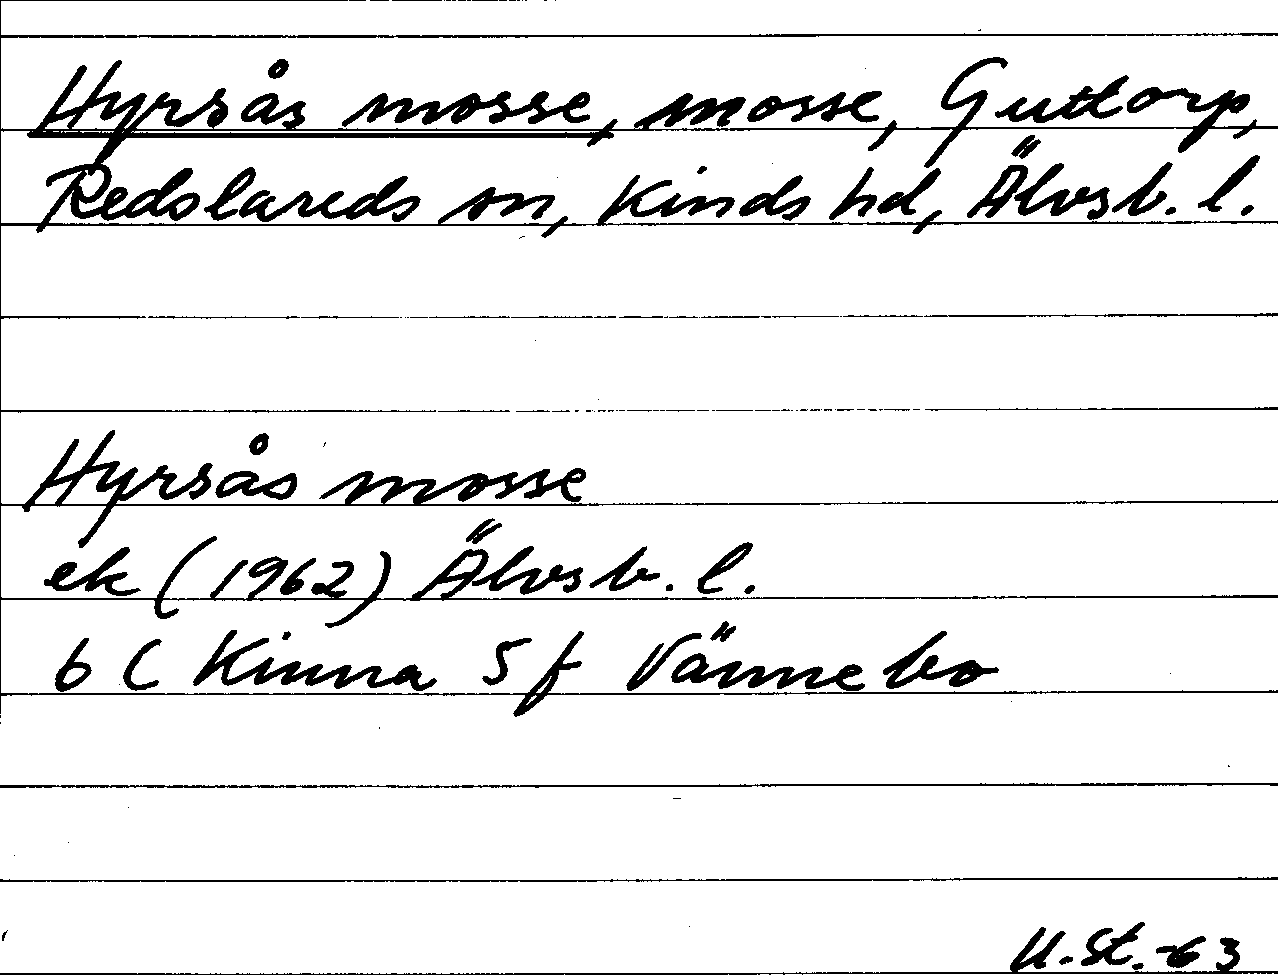 Hyrsås mosse, mosse, Guttorp,
Redslareds sn, Kinds hd, Älvsb. l.
Hyrsås mosse
ek (1962) Älvsb. l.
6 C Kinna 5 f Vännebo
U.St.-63